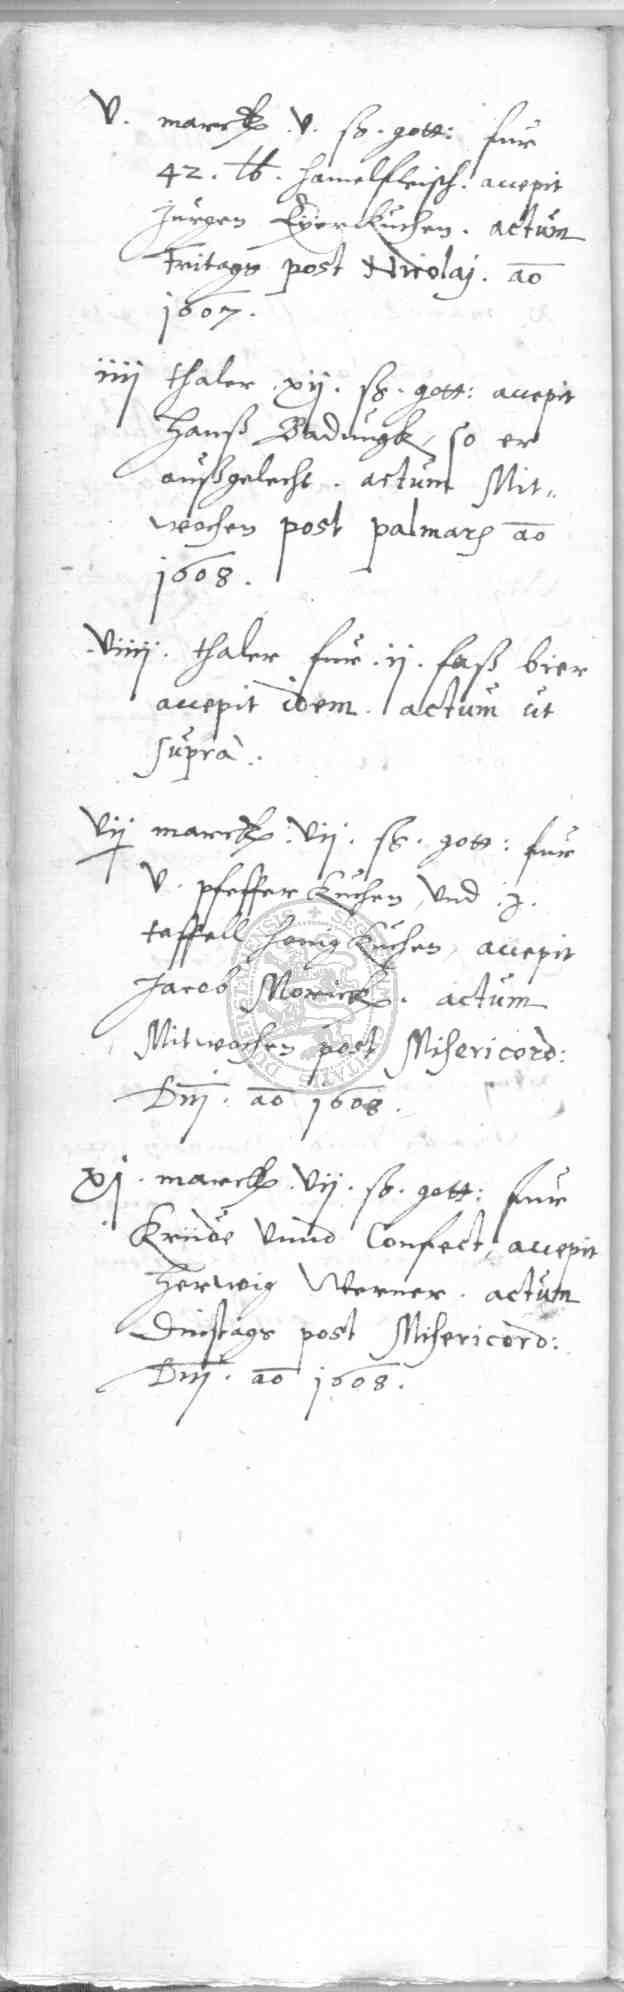 V. marck. V. ß. gott: fur
42. lb. hamelfleisch. accepit
Jurgen Eyerkuchen. actum
Fritags post Nicolaj. ao
1607.
iiij thaler. xij. ß. gott: accepit
Hanß Badungk, so er
außgelecht. actum Mit„
wochen post palmarũ ao
1608.
Viiij. thaler fur. ij. faß bier
accepit idem. actum ut
supra.
Vij marck. Vij. ß. gott: fur
V. pfeffer kuchen, Vnd .j.
taffell honigkuchen, accepit
Jacob Morick. actum
Mitwochen post Misericord:
Dni. ao 1608.
xj. marck. Vij. ß. gott: fur
Krude Vnnd Confect, accepit
Herwig Werner. actum
Dinstags post Misericord:
Dni. ao 1608.